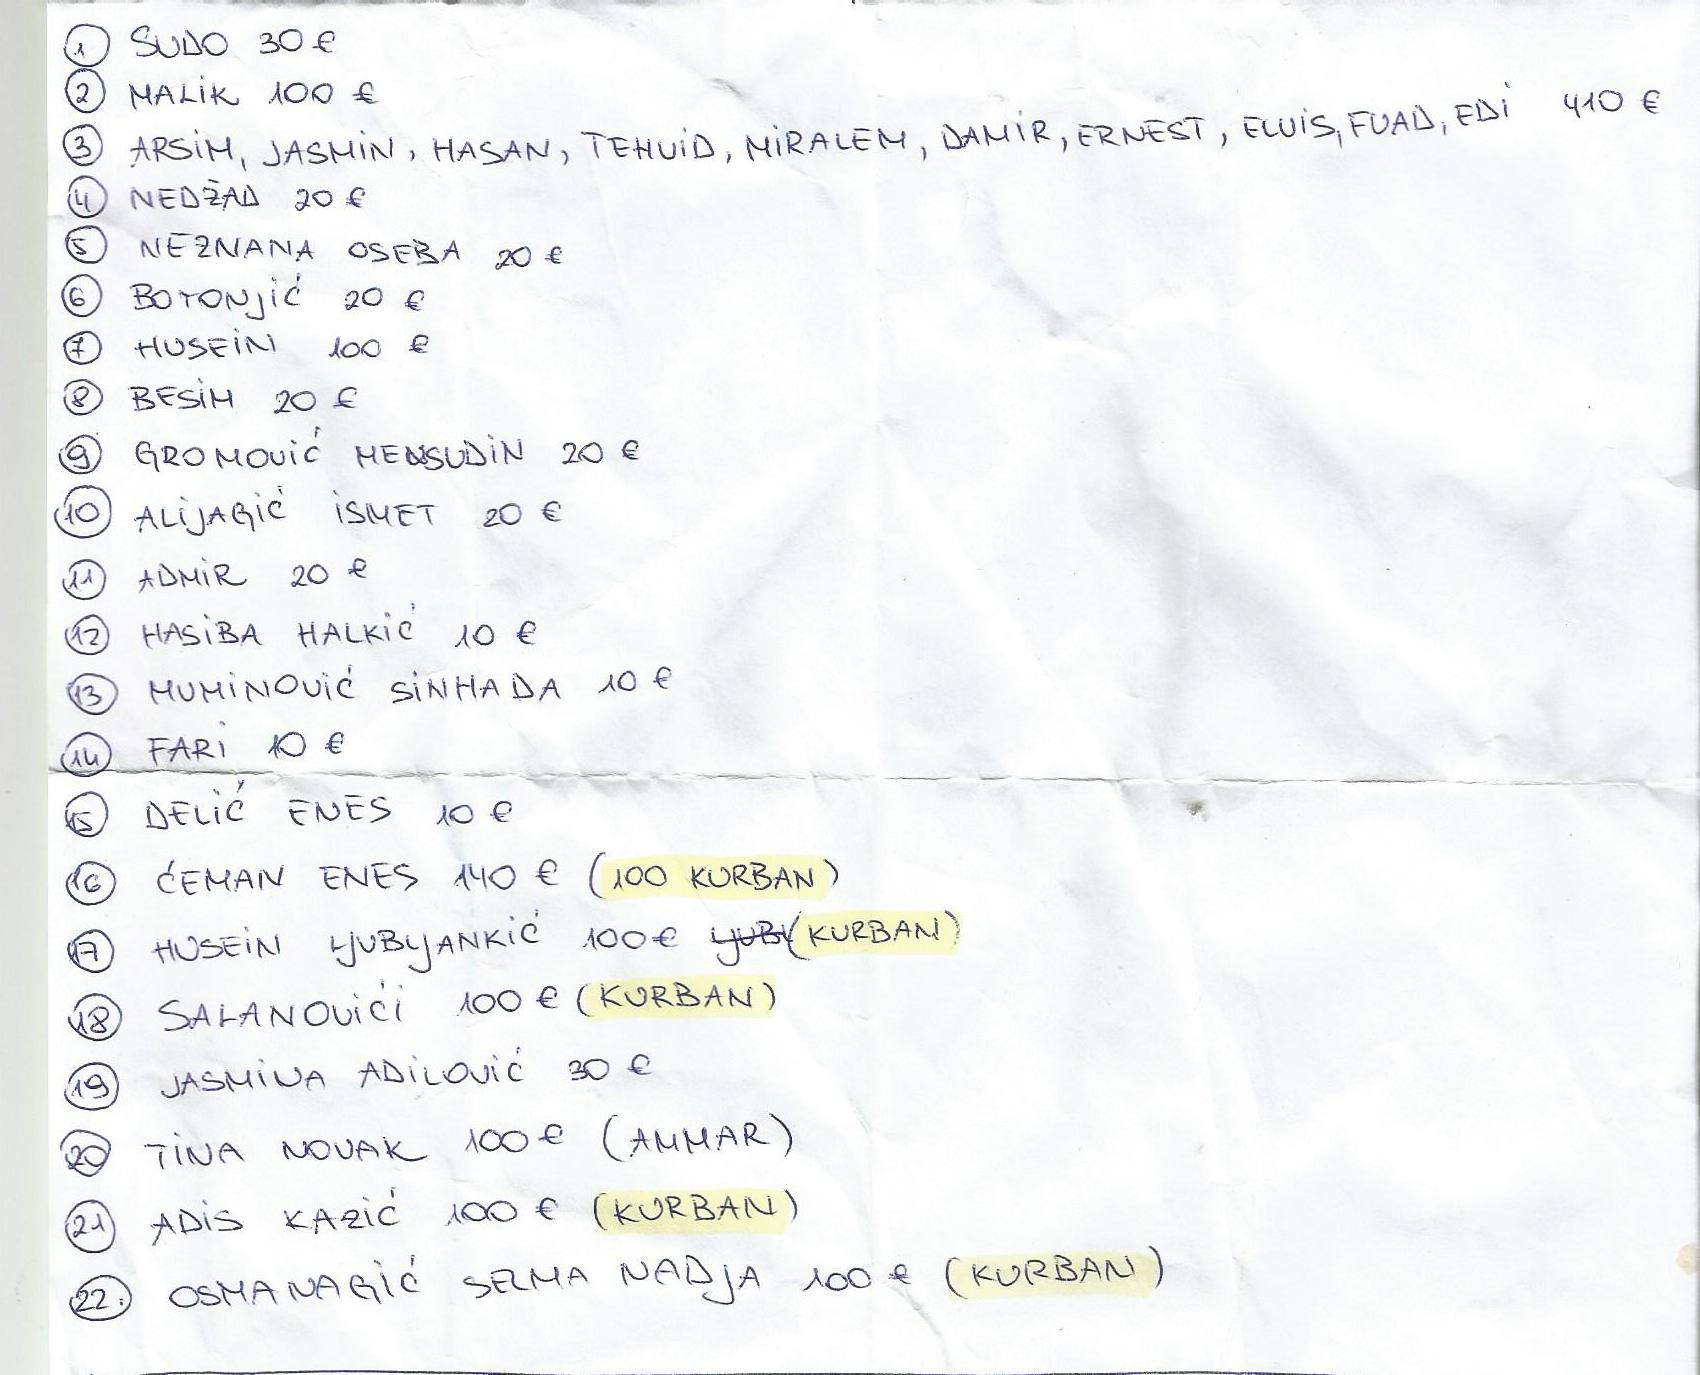 1 SUDO 30 €
2 MALIK 100 €
3 ARSIM, JASMIN, HASAN, TEHVID, MIRALEM, DAMIR, ERNEST, ELVIS, FUAD, EDI 410 €
4 NEDŽAD 20 €
5 NEZNANA OSEBA 20 €
6 BOTONJIĆ 20 €
7 HUSEIN 100 €
8 BESIM 20 €
9 GROMOVIĆ MENSUDIN 20 €
10 ALIJAGIĆ ISMET 20 €
11 ADMIR 20 €
12 HASIBA HALKIĆ 10 €
13 MUMINOVIĆ SINHADA 10 €
14 FARI 10 €
15 DELIĆ ENES 10 €
16 ĆEMAN ENES 140 € (100 KURBAN)
17 HUSEIN LJUBIJANKIĆ 100 € LJUBI (KURBAN)
18 SALANOVIĆI 100 € (KURBAN)
19 JASMINA ADILOVIĆ 30 €
20 TINA NOVAK 100 € (AMMAR)
21 ADIS KAZIĆ 100 € (KURBAN)
22. OSMANAGIĆ SELMA NADJA 100 € (KURBAN)